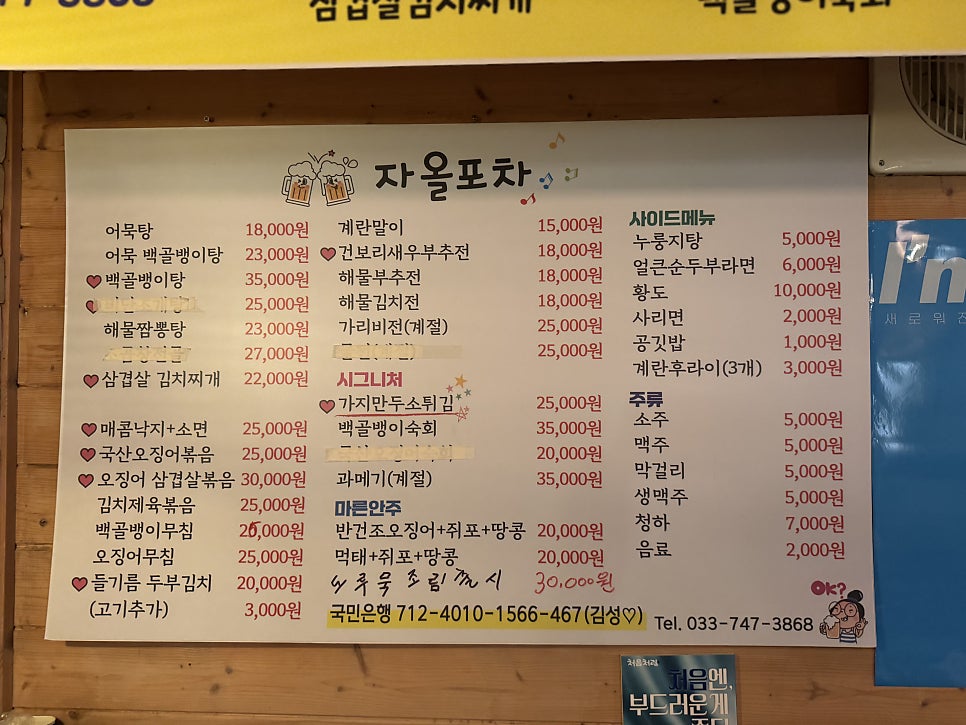 삼겹살김치찌개
자올포차
어묵탕 18,000원
어묵 백골뱅이탕 23,000원
백골뱅이탕 35,000원
25,000원
해물짬뽕탕 23,000원
27,000원
삼겹살 김치찌개 22,000원
매콤낙지+소면 25,000원
국산오징어볶음 25,000원
오징어 삼겹살볶음 30,000원
김치제육볶음 25,000원
백골뱅이무침 25,000원
오징어무침 25,000원
들기름 두부김치 20,000원
(고기추가) 3,000원
계란말이 15,000원
건보리새우부추전 18,000원
해물부추전 18,000원
해물김치전 18,000원
가리비전(계절) 25,000원
25,000원
시그니처
가지만두소튀김 25,000원
백골뱅이숙회 35,000원
20,000원
과메기(계절) 35,000원
마른안주
반건조오징어+쥐포+땅콩 20,000원
먹태+쥐포+땅콩 20,000원
30,000원
국민은행 712-4010-1566-467(김성♡)
사이드메뉴
누룽지탕 5,000원
얼큰순두부라면 6,000원
황도 10,000원
사리면 2,000원
공깃밥 1,000원
계란후라이(3개) 3,000원
주류
소주 5,000원
맥주 5,000원
막걸리 5,000원
생맥주 5,000원
청하 7,000원
음료 2,000원
OK?
Tel. 033-747-3868
새로워
처음처럼
처음엔,
부드러운게